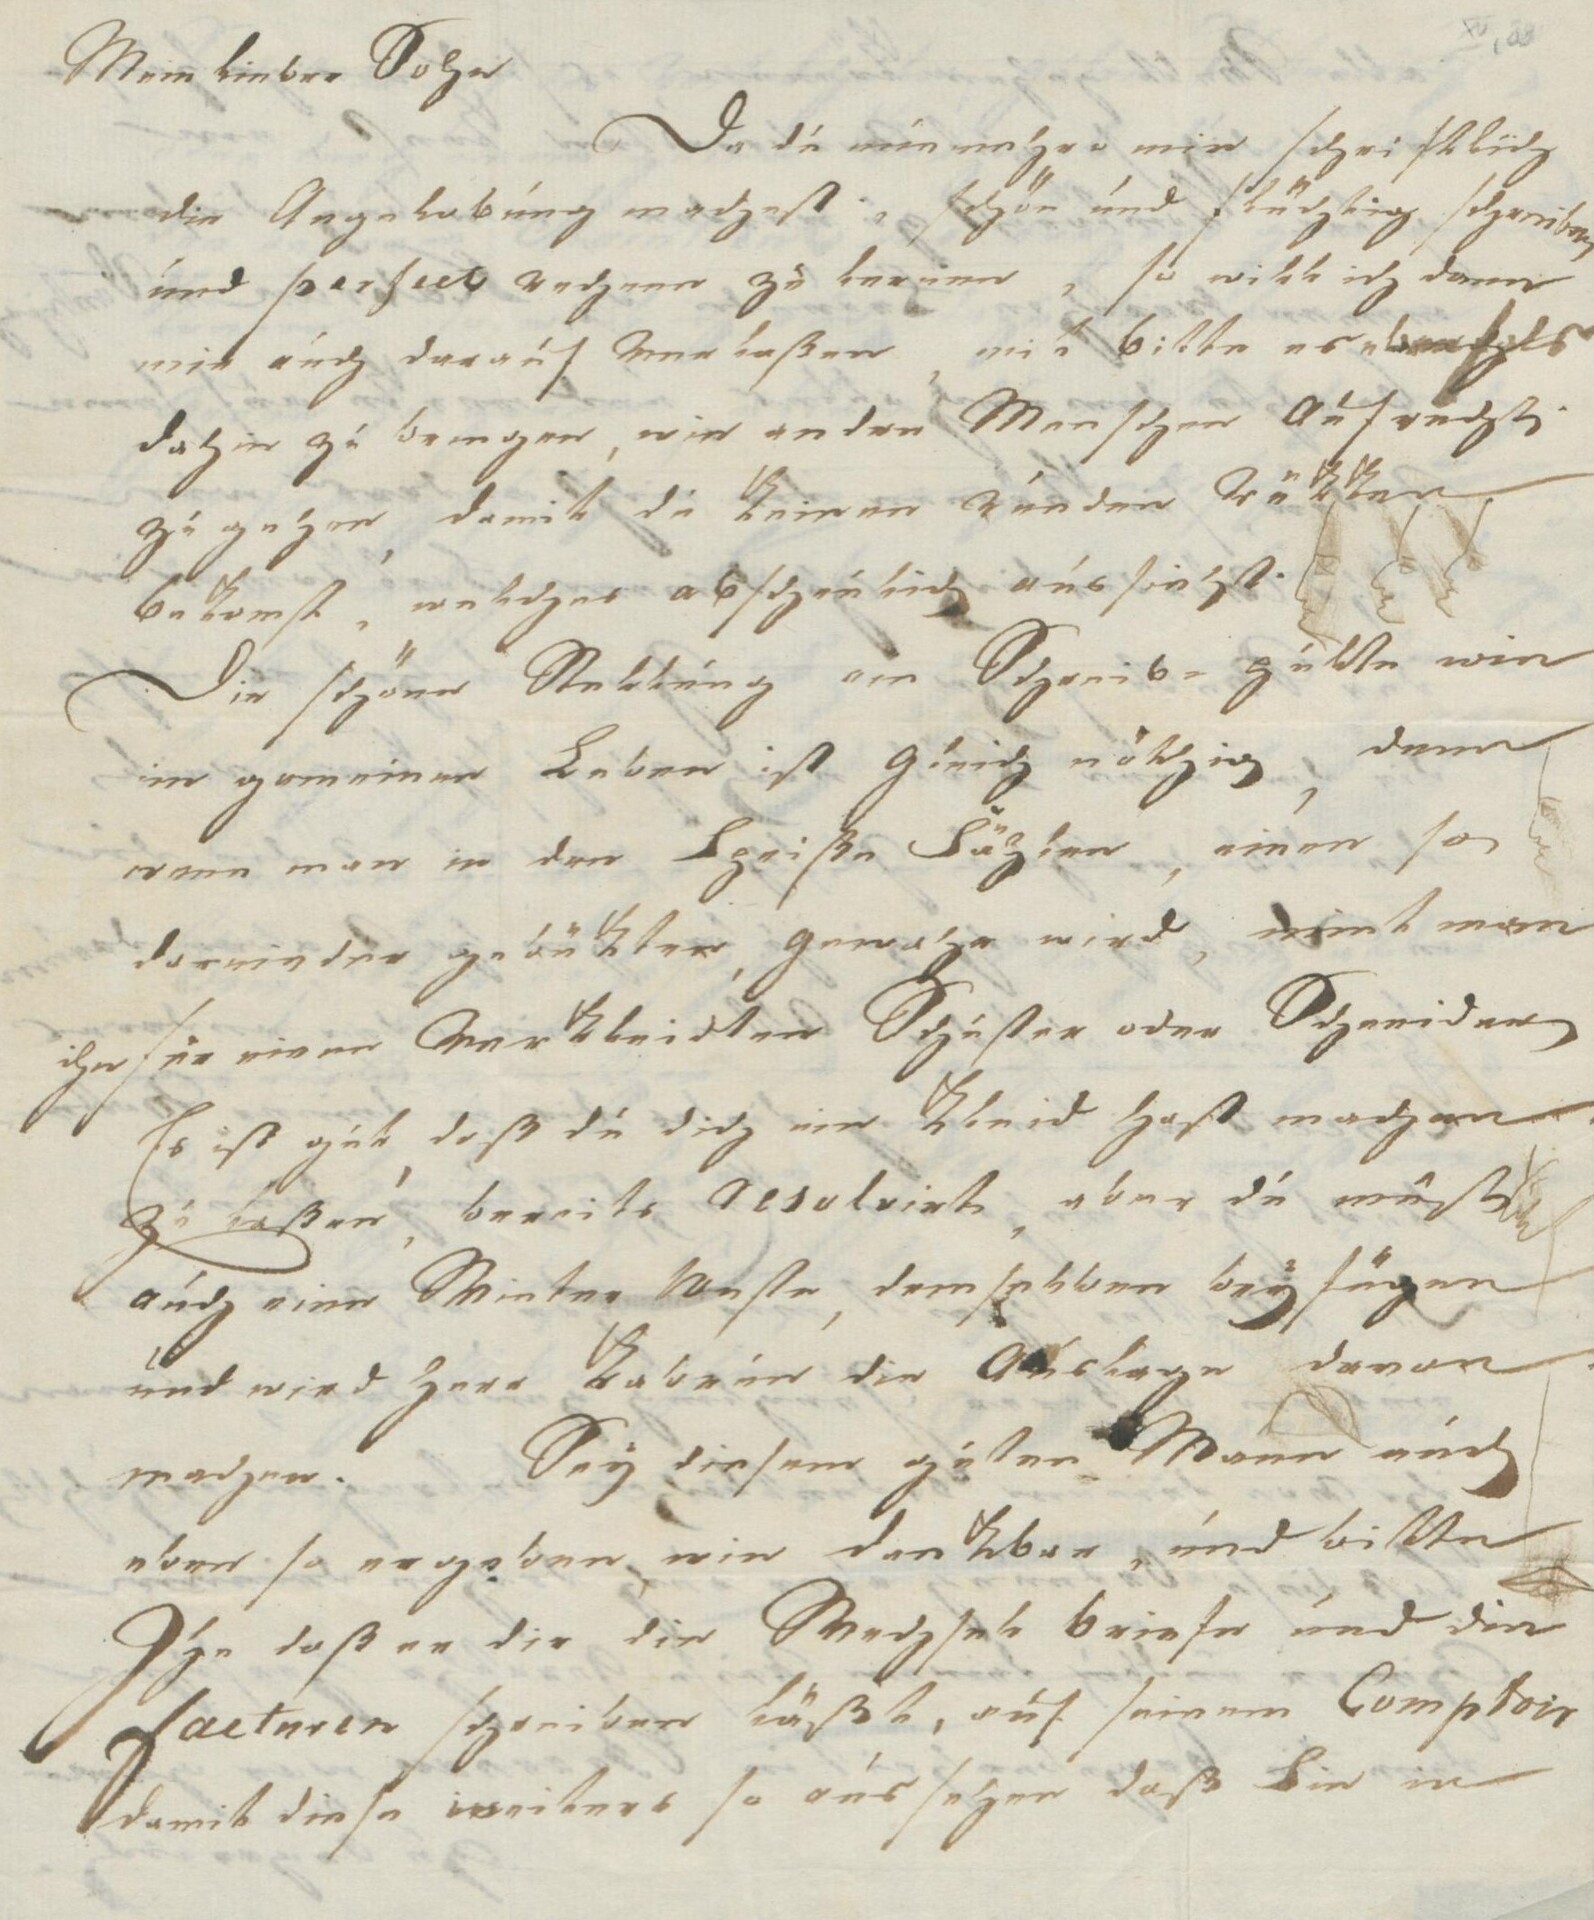 Mein lieber Sohn
Da du nunmehro mir schriftlich
die Angelobung machest, schön und flüchtig schreiben
und perfect rechnen zu lernen, so will ich dann
mir auch darauf Verlaßen, mit bitte es ebenfals
dahin zu bringen, wie andre Menschen Aufrecht
zu gehen, damit du keinen runden Rükken
bekomst, welches abscheulich aussieht.
Die schöne Stellung am Schreibe pulte wie
im gemeinen Leben ist gleich nöthig, denn
wenn man in den Speiße Säählen, einen so
darnieder gebükten, gewahr wird, nimt man
ihn für einen Verkleidten Schuster oder Schneider
Es ist gut, daß du dich ein Kleid hast machen
zu laßen, bereits resolvirt, aber du must
auch eine Winter Weste, demselben beyfügen
und wird Herr Kabrun die Auslage davon
machen. Sey diesem guten Mann auch
eben so ergeben, wie dankbar, und bitte
Ihn daß er dir die Wechsel briefe und die
Facturen schreiben läßt, auf seinem Comptoir
damit diese weiters so aussehen daß Sie in